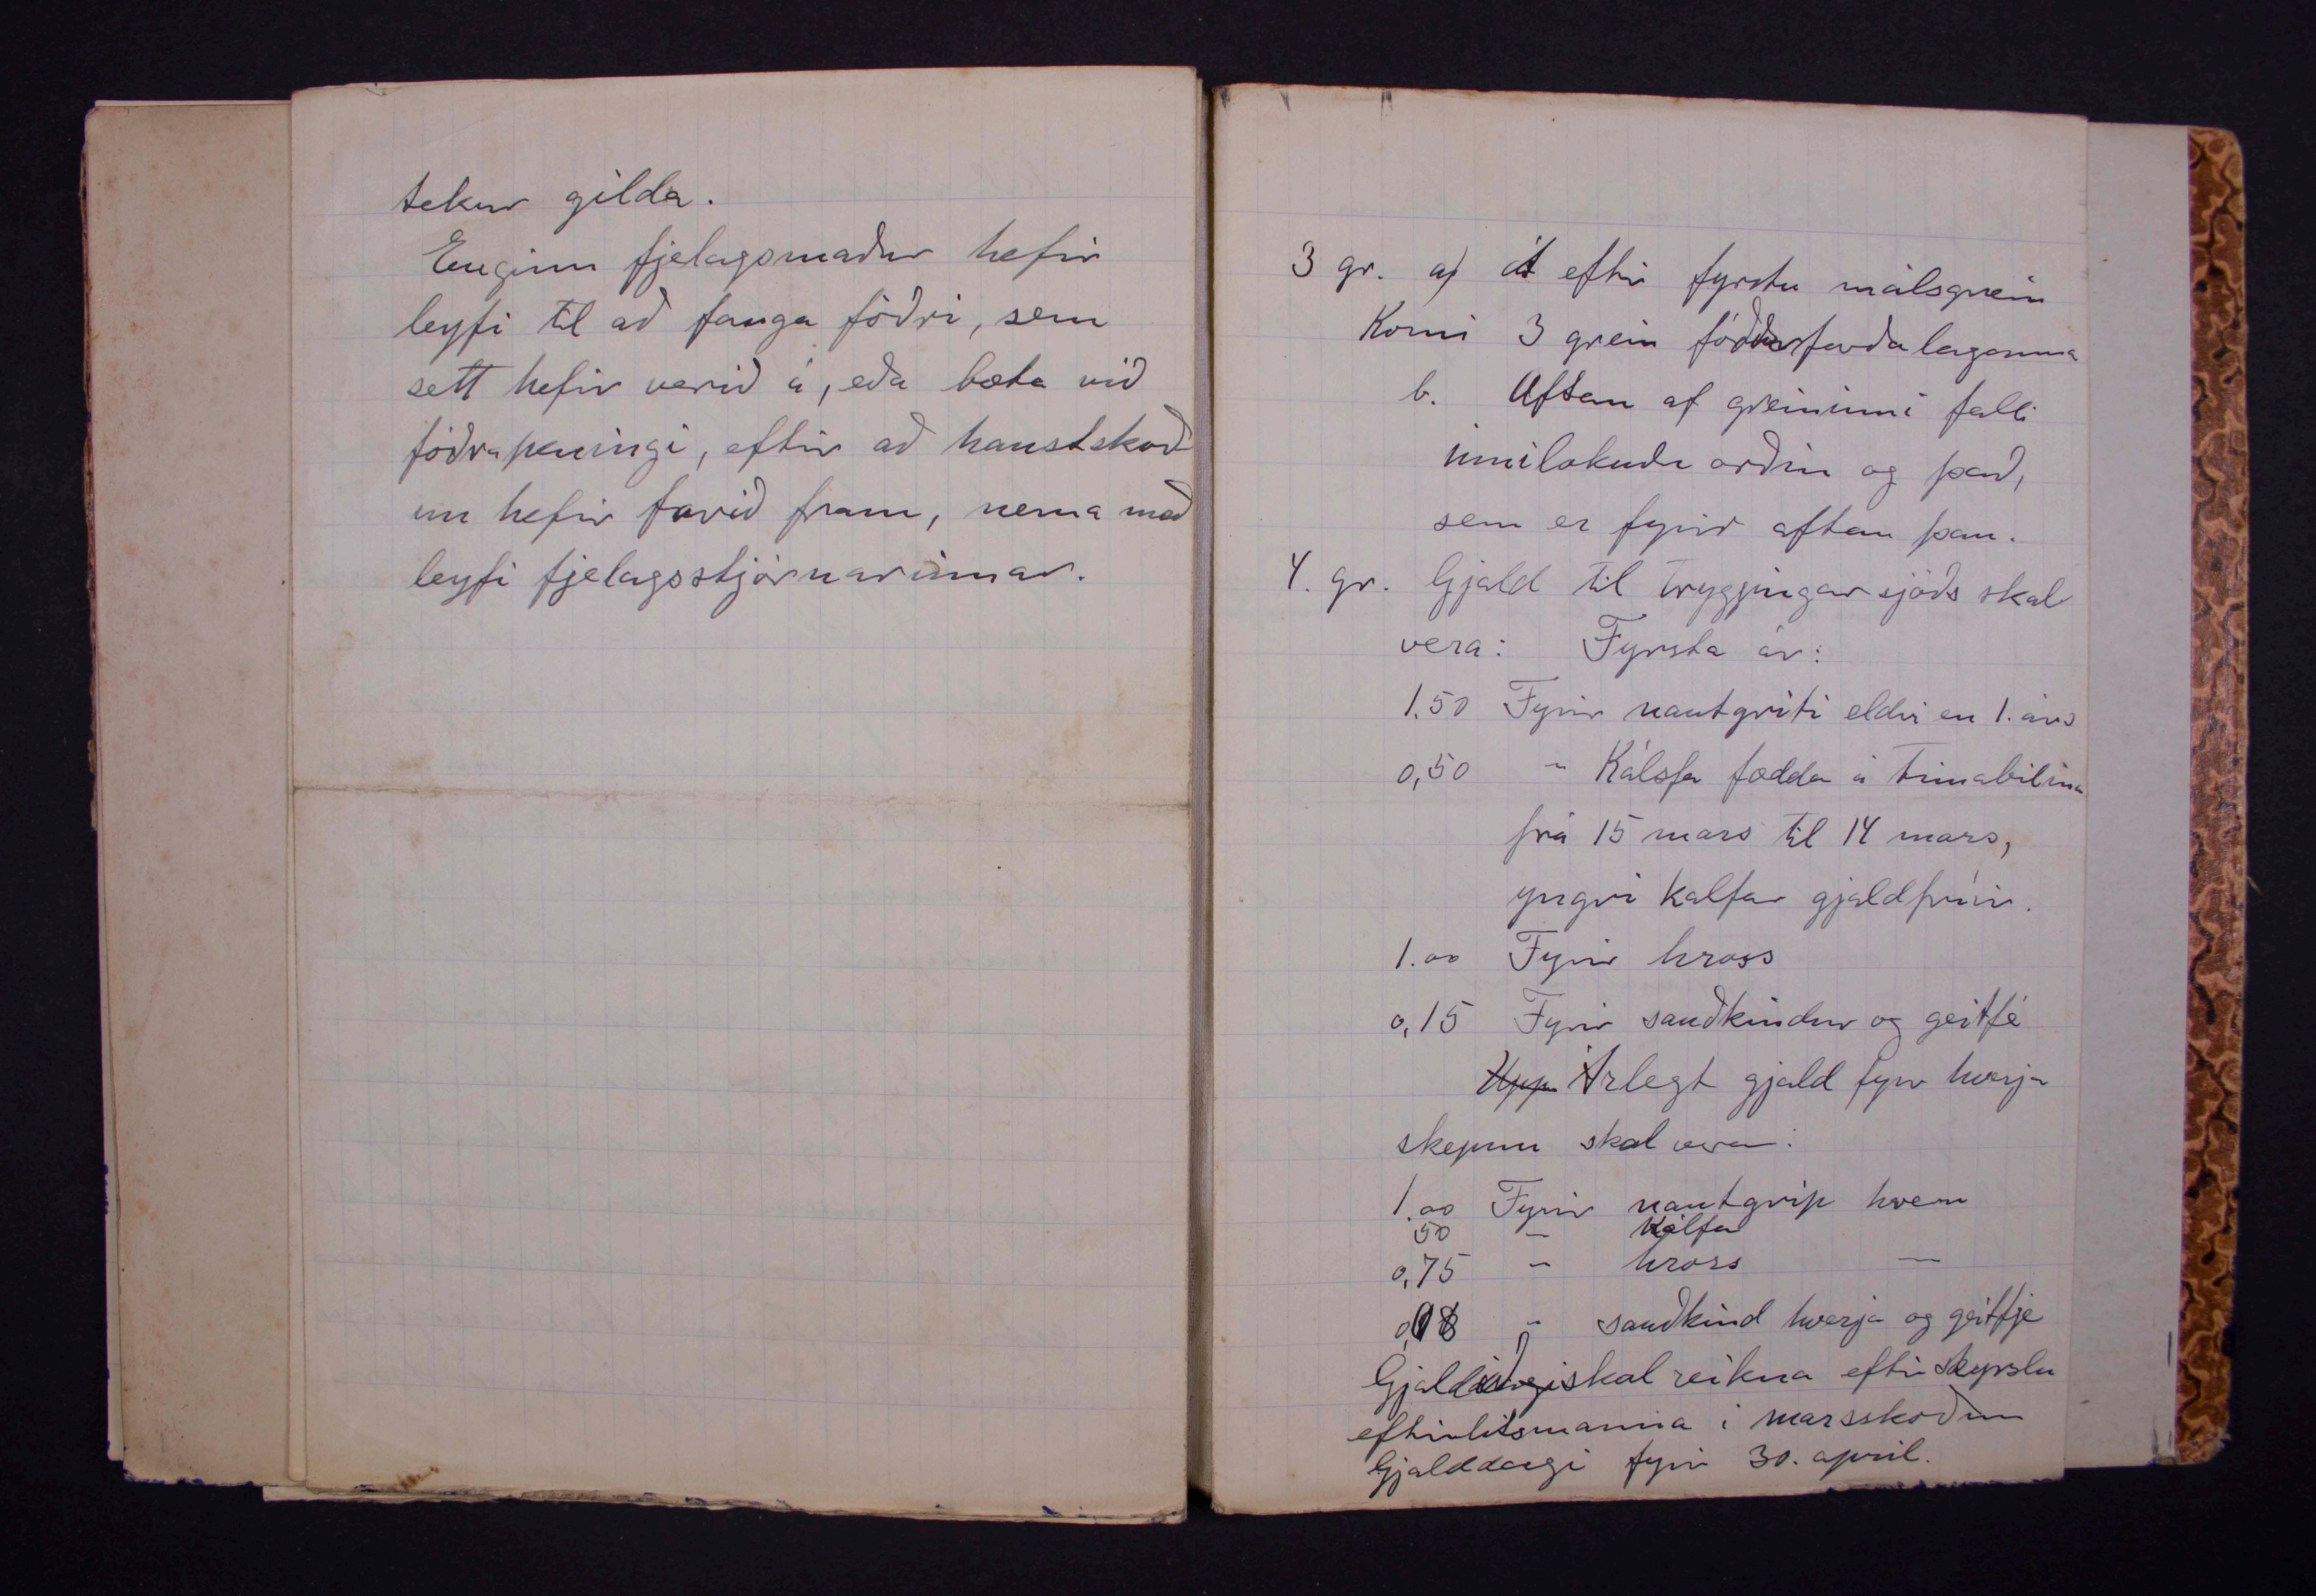 tekur gilda.
Enginn fjelagsmaður hefir
leyfi til að fanga fóðri, sem
sett hefir verið á, eða bæta við
fóðrapeningi, eftir að haustskoð
un hefir farið fram, nema með
leyfi fjelagsstjórnarinnar.
3 gr. a) át eftir fyrstu málsgrein
Komi 3 grein fóðurforðalaganna
b. Aftan af greininni falli
innilokuðu orðin og það,
sem er fyrir aftan þau.
4. gr. Gjald til tryggingarsjóðs skal
vera: Fyrsta ár:
1.50 Fyrir nautgripi eldri en 1. árs
0,50 " Kálfa fædda á timabilinu
frá 15 mars til 14 mars,
yngri kalfar gjaldfríir.
1.00 Fyrir hross
0,15 Fyrir sauðkindur og geitfé
Upp Árlegt gjald fyrir hverja
skepnu skal vera:
1.00 Fyrir nautgrip hvern
50 — Kálfa
0,75 " hross —
" sauðkind hverja og geitfje
skal reikna eftir skyrslu
eftirlitsmanna i marsskoðun
Gjalddagi fyrir 30. apríl.